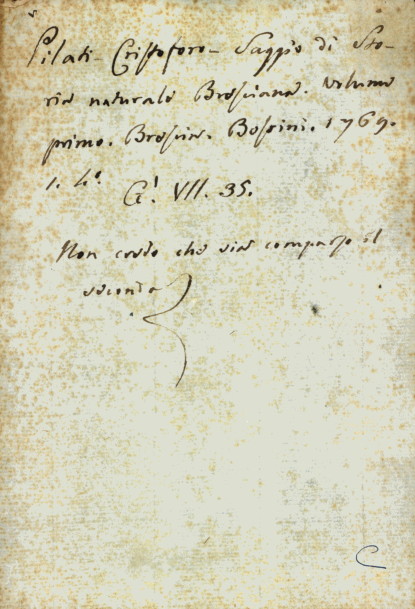 Pilati - Cristoforo - Saggio di Sto-
ria naturale Bresciana. Volume
primo. Brescia. Bossini. 1769.
1. 4.º
G! VII. 35.
Non credo che sia comparso il
secondo
C